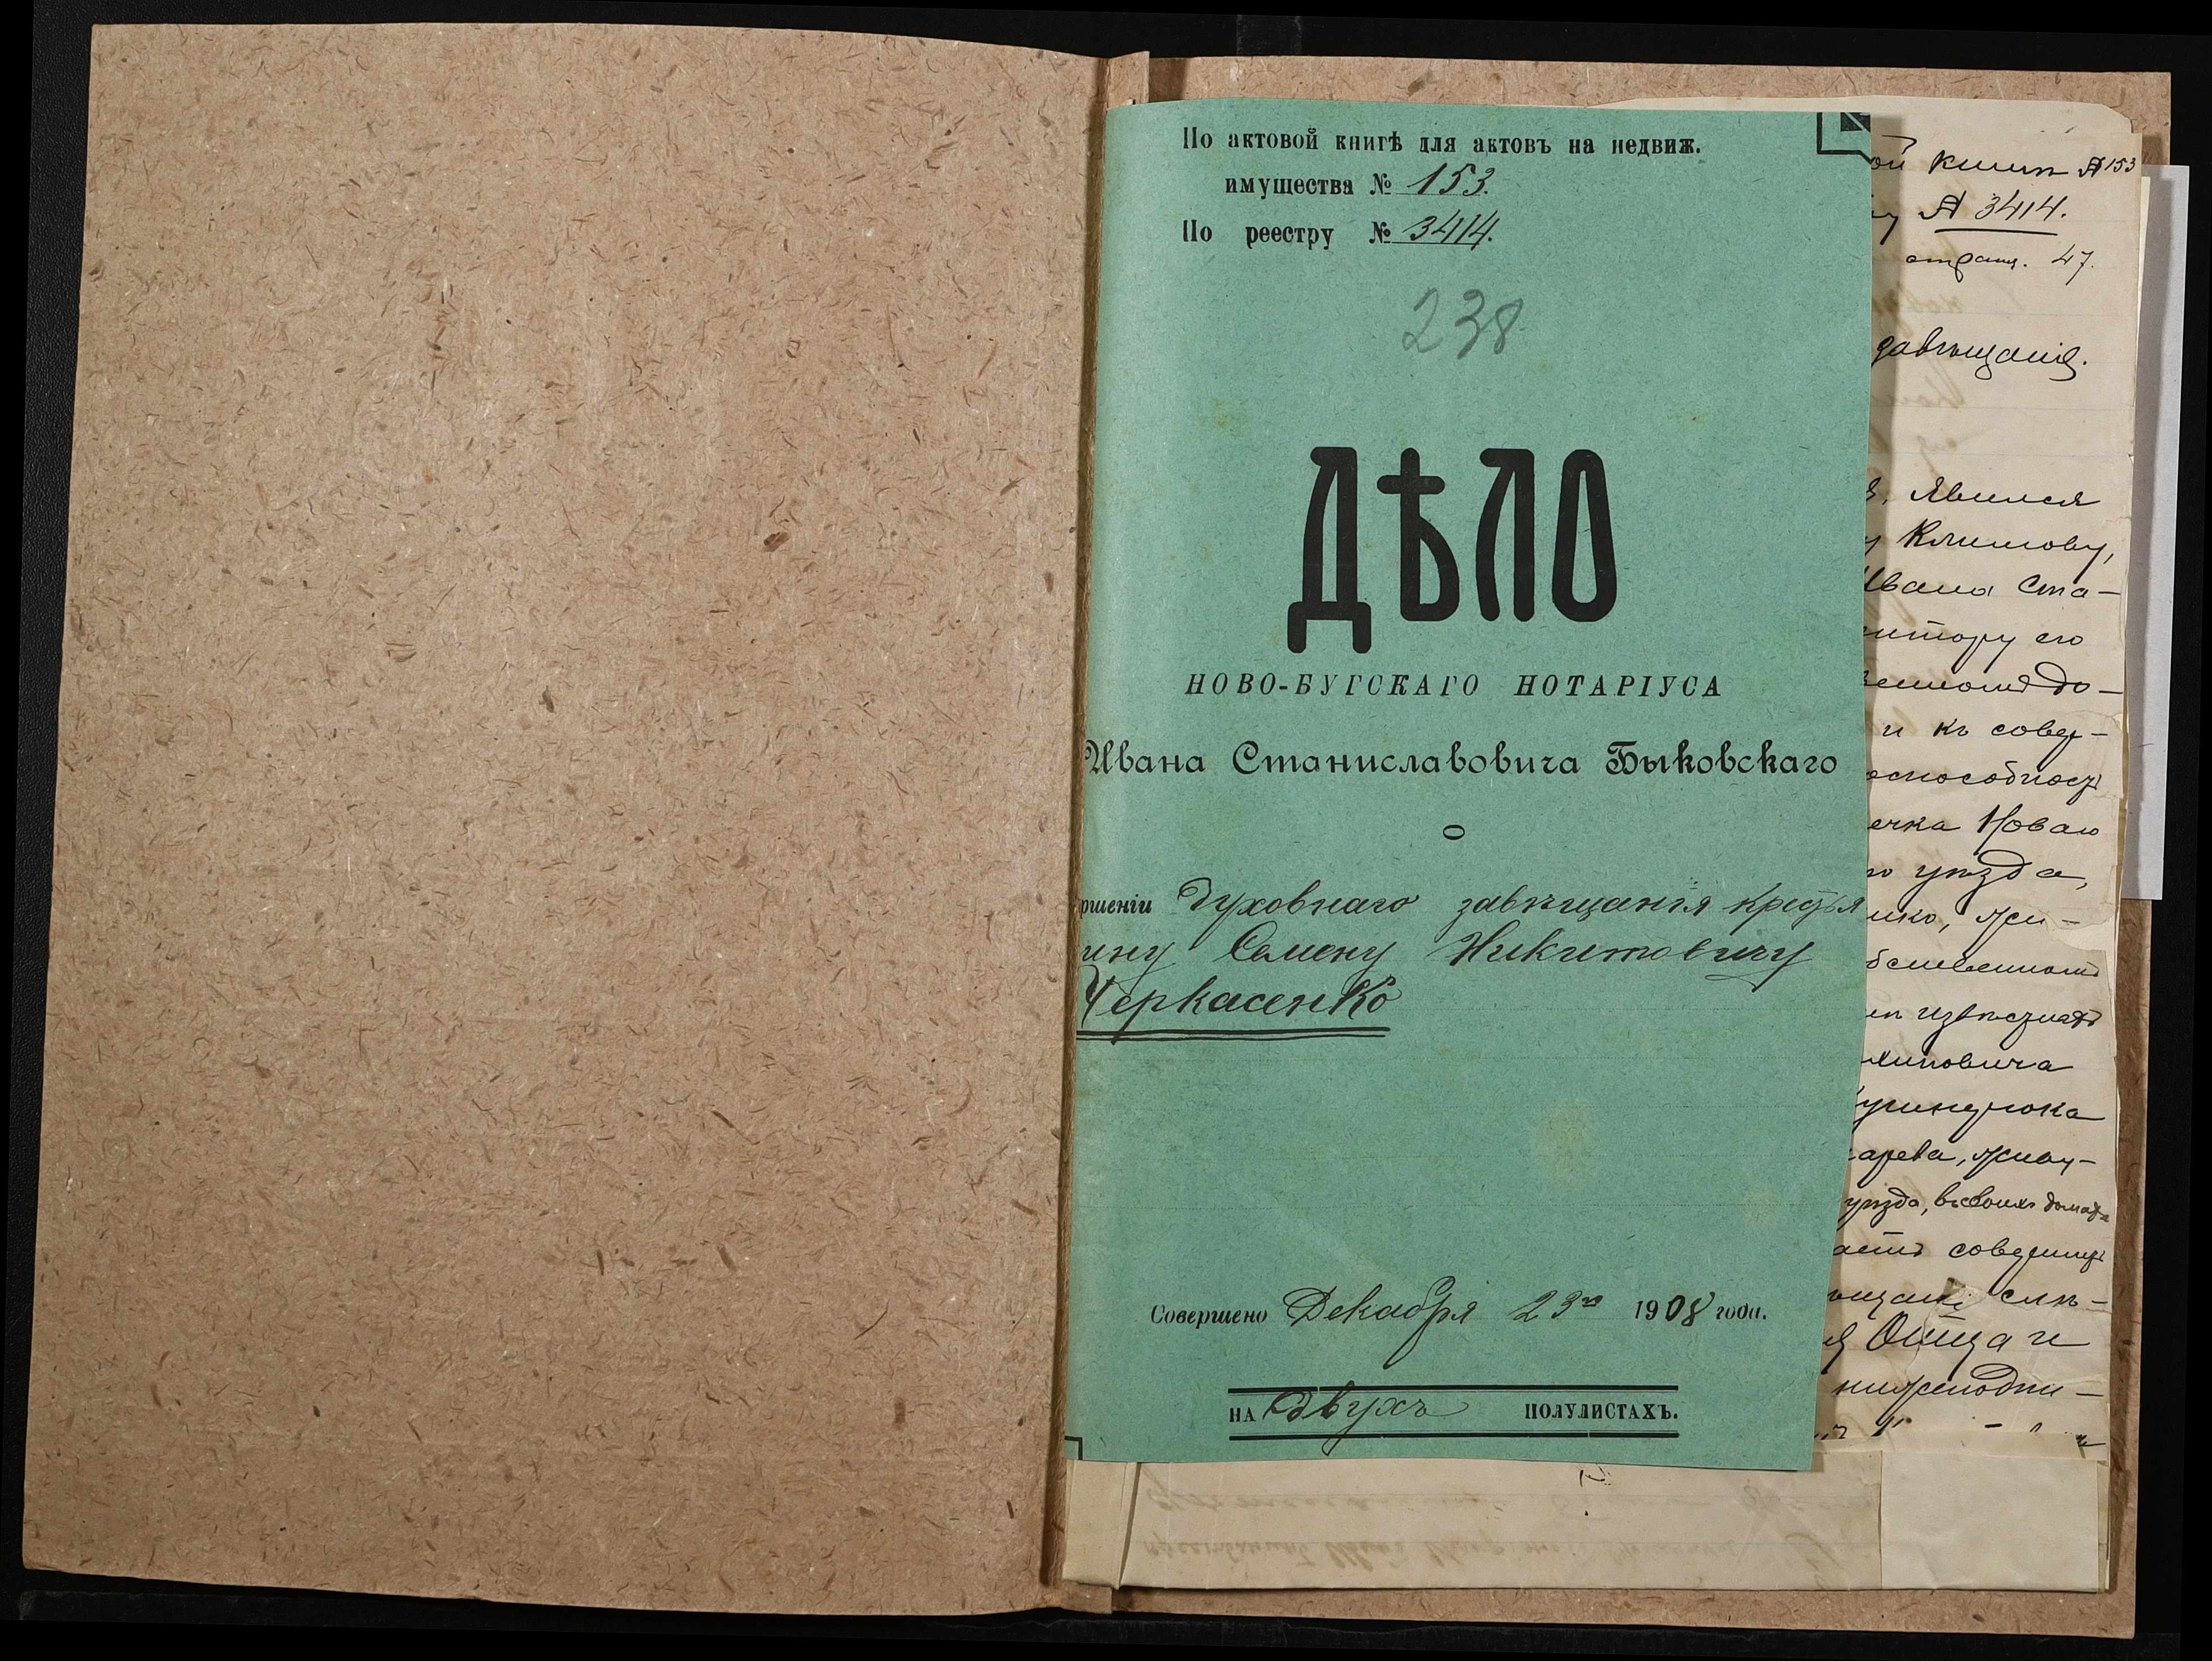 По актовой книгѣ для актовъ на недвиж.
имущества № 153.
По реестру № 3414.
238
ДѢЛО
НОВО-БУГСКАГО НОТАРІУСА
Ивана Станиславовича Быковскаго
о
ршеніи Духовнаго завѣщанія крестья
ину Семену Никитовичу
Черкасенко
Совершено Декабря 23го 1908 года.
НА двухъ ПОЛУЛИСТАХЪ.
ой книгѣ № 153
у № 3414.
страниц. 47.
завѣщанія.
явился
Климову,
Ивана Ста-
нтору его
до-
и къ совер-
еспособность
ечка Новаго
го уѣзда,
нко, жи-
извѣстнаго
хиповича
арева, живу-
уѣзда, въ своихъ домахъ
совершить
слѣ-
Отца и
нижеподпи-